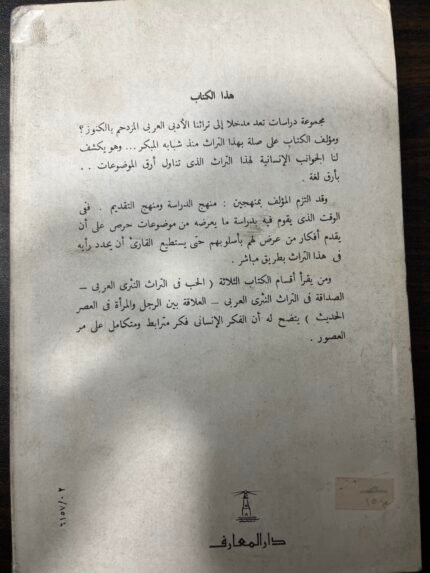 هذا الكتاب
مجموعة دراسات تعد مدخلا إلى تراثنا الأدبى العربى المزدحم بالكنوز ؟
ومؤلف الكتاب على صلة بهذا التراث منذ شبابه المبكر ... وهو يكشف
لنا الجوانب الإنسانية لهذا التراث الذى تناول أرق الموضوعات . .
بأرق لغة .
وقد التزم المؤلف بمنهجين : منهج الدراسة ومنهج التقديم . ففى
الوقت الذى يقوم فيه بدراسة ما يعرضه من موضوعات حرص على أن
يقدم أفكار من عرض لهم بأسلوبهم حتى يستطيع القارئ أن يحدد رأيه
فى هذا التراث بطريق مباشر .
ومن يقرأ أقسام الكتاب الثلاثة ( الحب فى التراث النثرى العربى –
الصداقة فى التراث النثرى العربى – العلاقة بين الرجل والمرأة فى العصر
الحديث ) يتضح له أن الفكر الإنسانى فكر مترابط ومتكامل على مر
العصور .
دارالمعارف